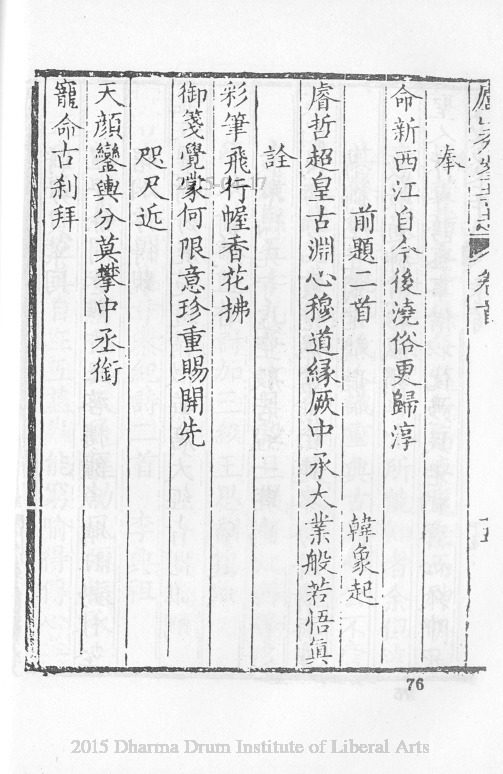 奉
命新西江自今後澆俗更歸淳
前題二首 韓象起
睿哲超皇古淵心穆道緣厥中承大業般若悟真
詮
彩筆飛行幄香花拂
御箋覺蒙何限意珍重賜開先
咫尺近
天顏鑾輿分莫攀中丞銜
寵命古剎拜
卷首
76
2015 Dharma Drum Institute of Liberal Arts